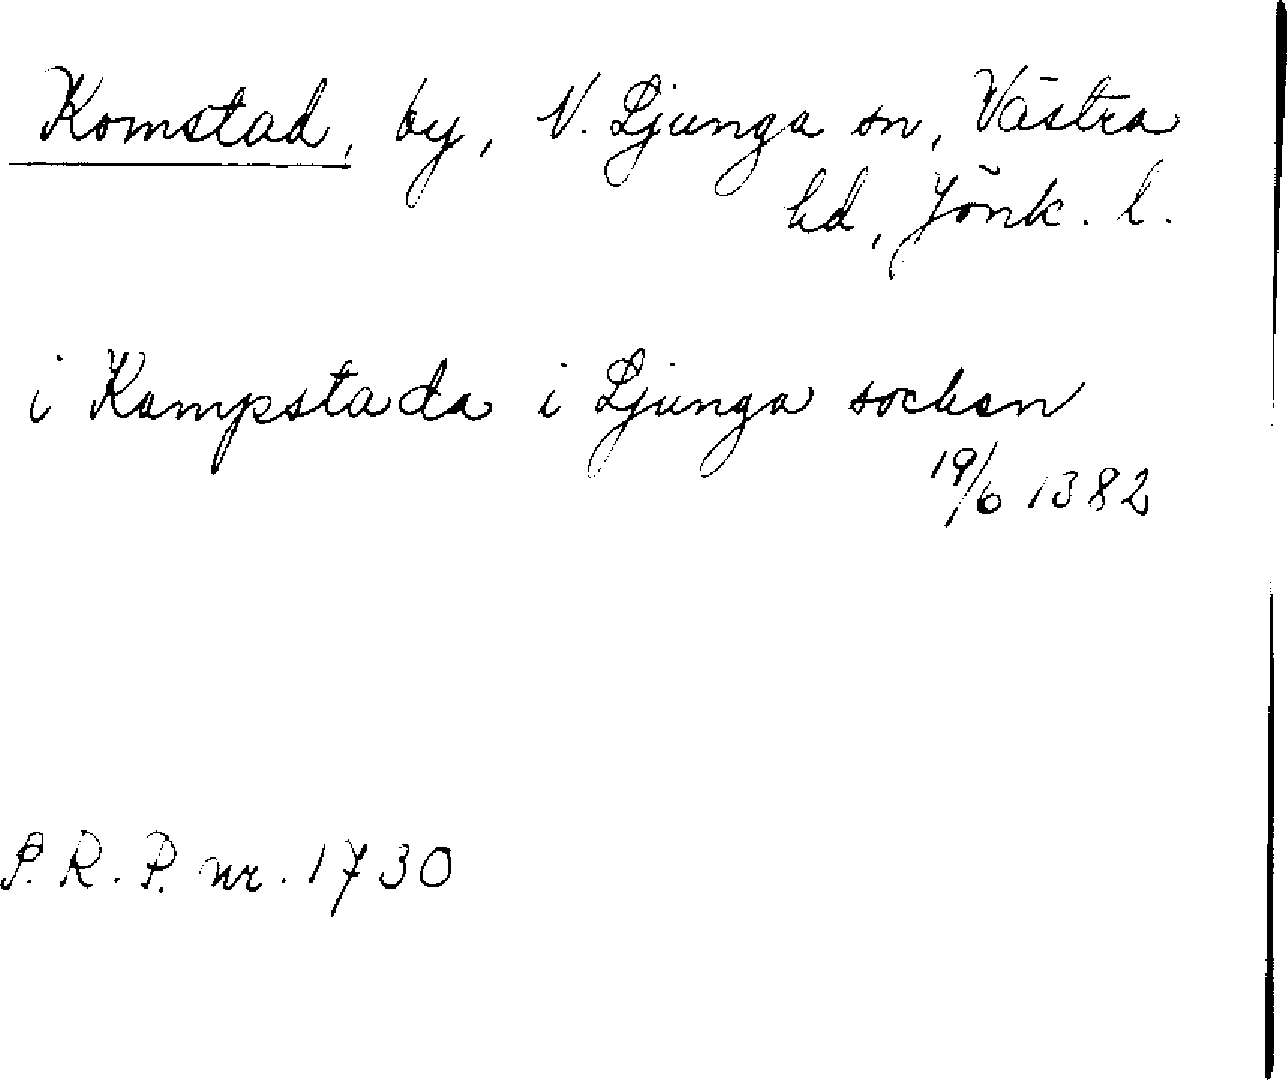 Komstad, by, N. Ljunga sn, Västra
hd, Jönk. l.
i Kompstada i Ljunga socken
19/6 1382
P. R. P. nr. 1730